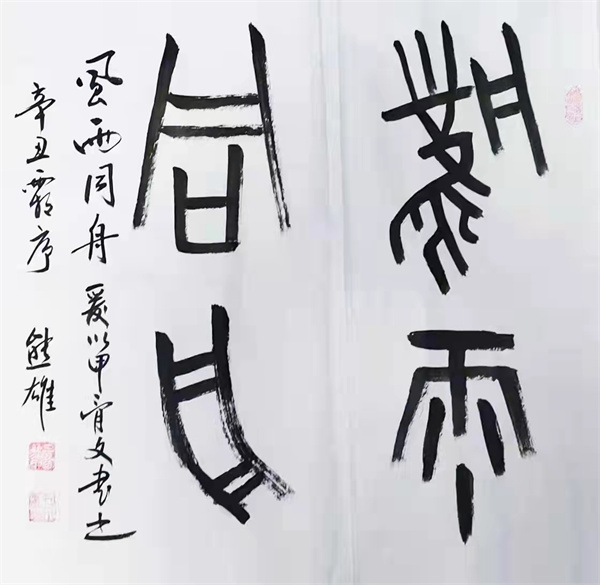 風雨
同舟
風雨同舟 爰以甲骨文書之
辛丑霜序 熊雄